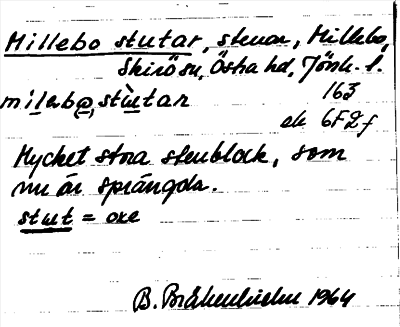 Millebo stutar, stenar, Millebo,
Skirö sn, Östra hd, Jönk. l.
163
ek 6F2f
Mycket stora stenblock, som
nu är sprängda.
stut = oxe
1964